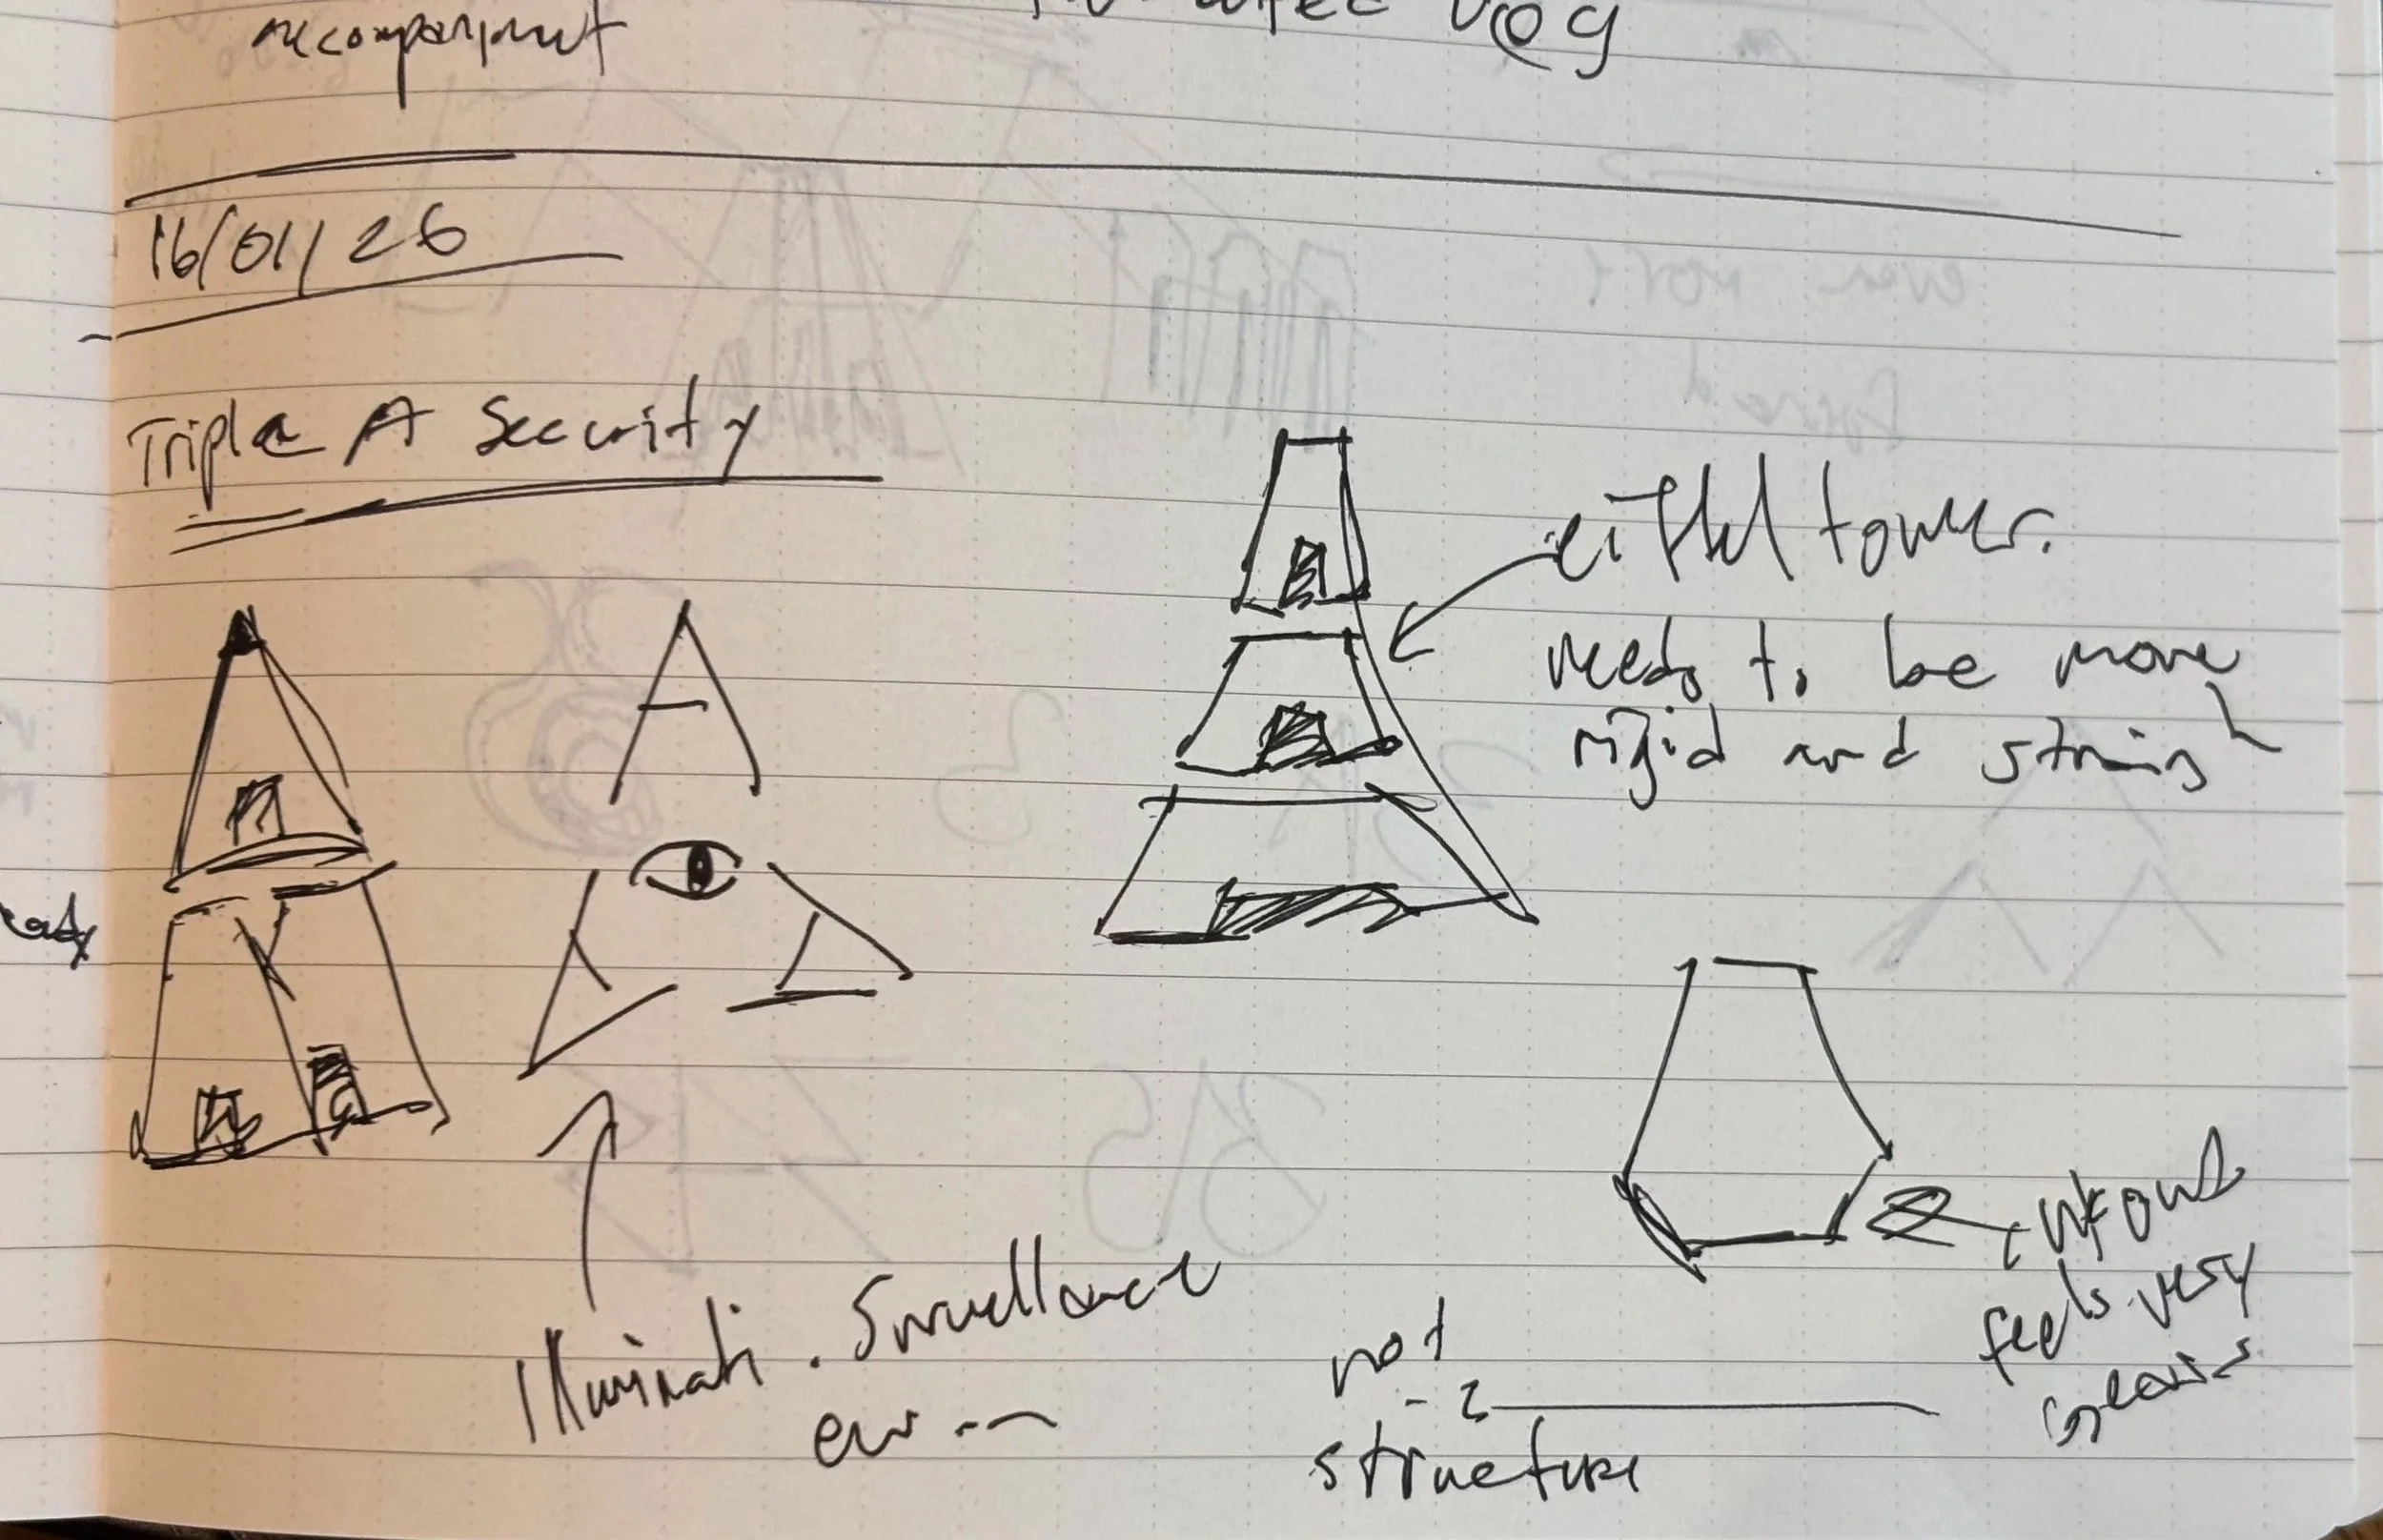 accompaniment
veg
16/01/26
Triple A Security
A
A
A
eiffel tower.
needs to be more
rigid and straight
Illuminati. Surveillance
ew --
not
structure
feels very